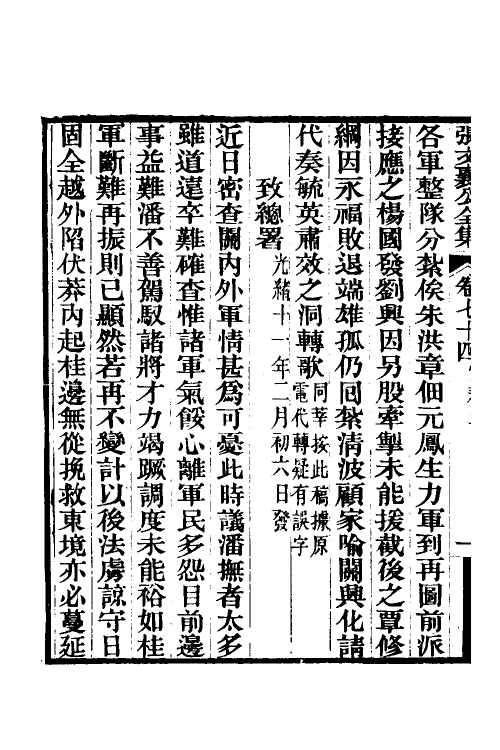 張文襄公全集 卷七十四
各軍整隊分紮俟朱洪章佃元鳳生力軍到再圖前派
接應之楊國發劉興因另股牽掣未能援截後之覃修
綱因永福敗退端雄孤仍囘紮清波顧家喻關興化請
代奏毓英肅效之洞轉歌同莘按此稿據原電代轉疑有誤字
致總署光緒十一年二月初六日發
近日密查關內外軍情甚爲可憂此時議潘撫者太多
雖道遠卒難確查惟諸軍氣餒心離軍民多怨目前邊
事益難潘不善駕馭諸將才力竭蹶調度未能裕如桂
軍斷難再振則已顯然若再不變計以後法虜諒守日
固全越外陷伏莽內起桂邊無從挽救東境亦必蔓延